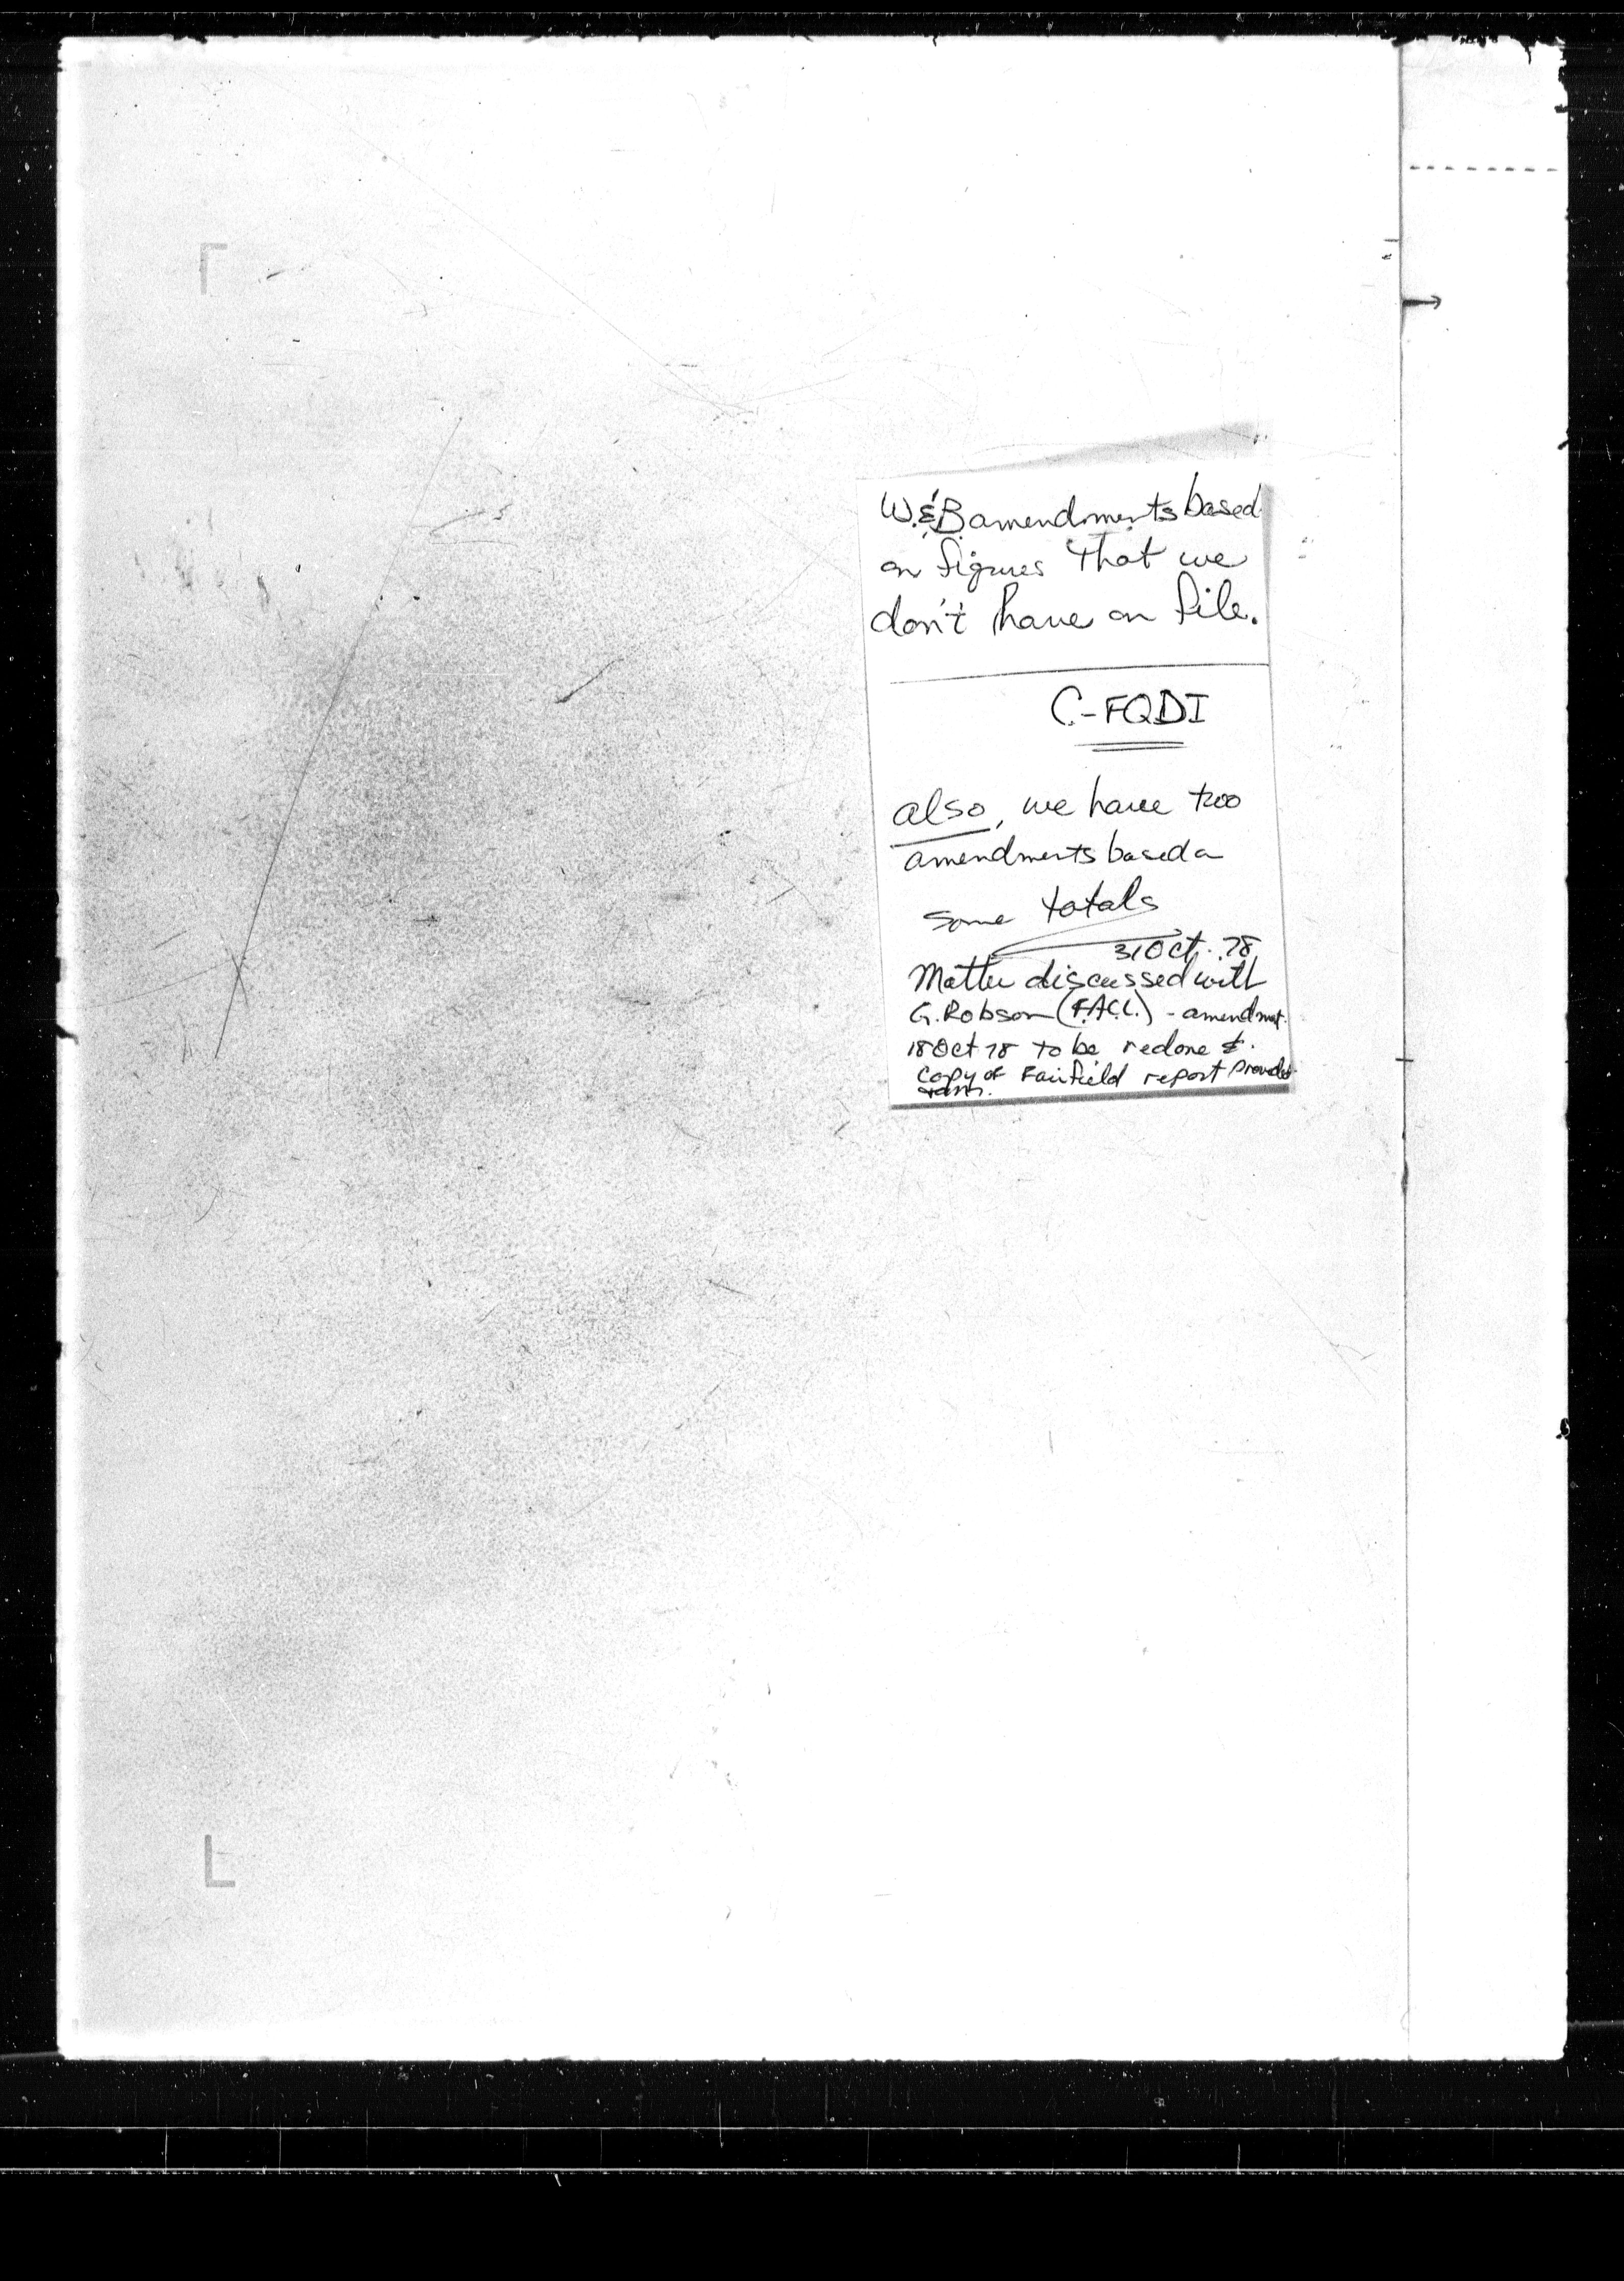 W.&B amendments based
on figures that we
don't have on file.
C-FQDI
also, we have two
amendments based on
same totals
31 Oct. 78
Matter discussed with
G. Robson (F.A.C.L.) - amendmt.
18 Oct 78 to be redone &
copy of Fairfield report provided